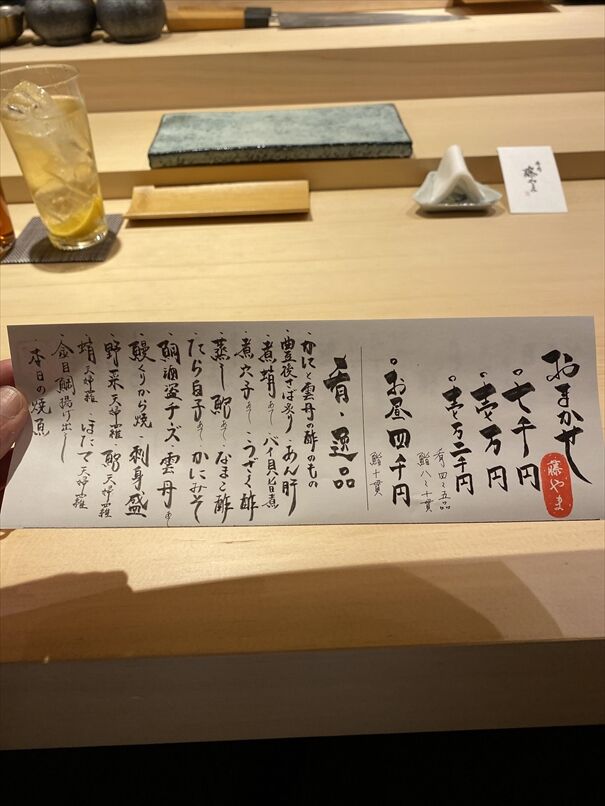 おまかせ
藤やま
。七千円
。壱万円
。壱万二千円
肴四〜五品
鮨八〜十貫
。お昼四千円
鮨十貫
肴・逸品
・かにと雲丹の酢のもの
・豊後さば炙り・あん肝
・煮蛤あし・バイ貝旨煮
・煮穴子あし・うざく酢
・蒸し鮑あし・なまこ酢
・たら白子あし・かにみそ
・鯛酒盗チーズ・雲丹あし
・鰻くりから焼・刺身盛
・野菜天婦羅・鮑天婦羅
・蛤天婦羅・ほたて天婦羅
・金目鯛揚げ出し
・本日の焼魚